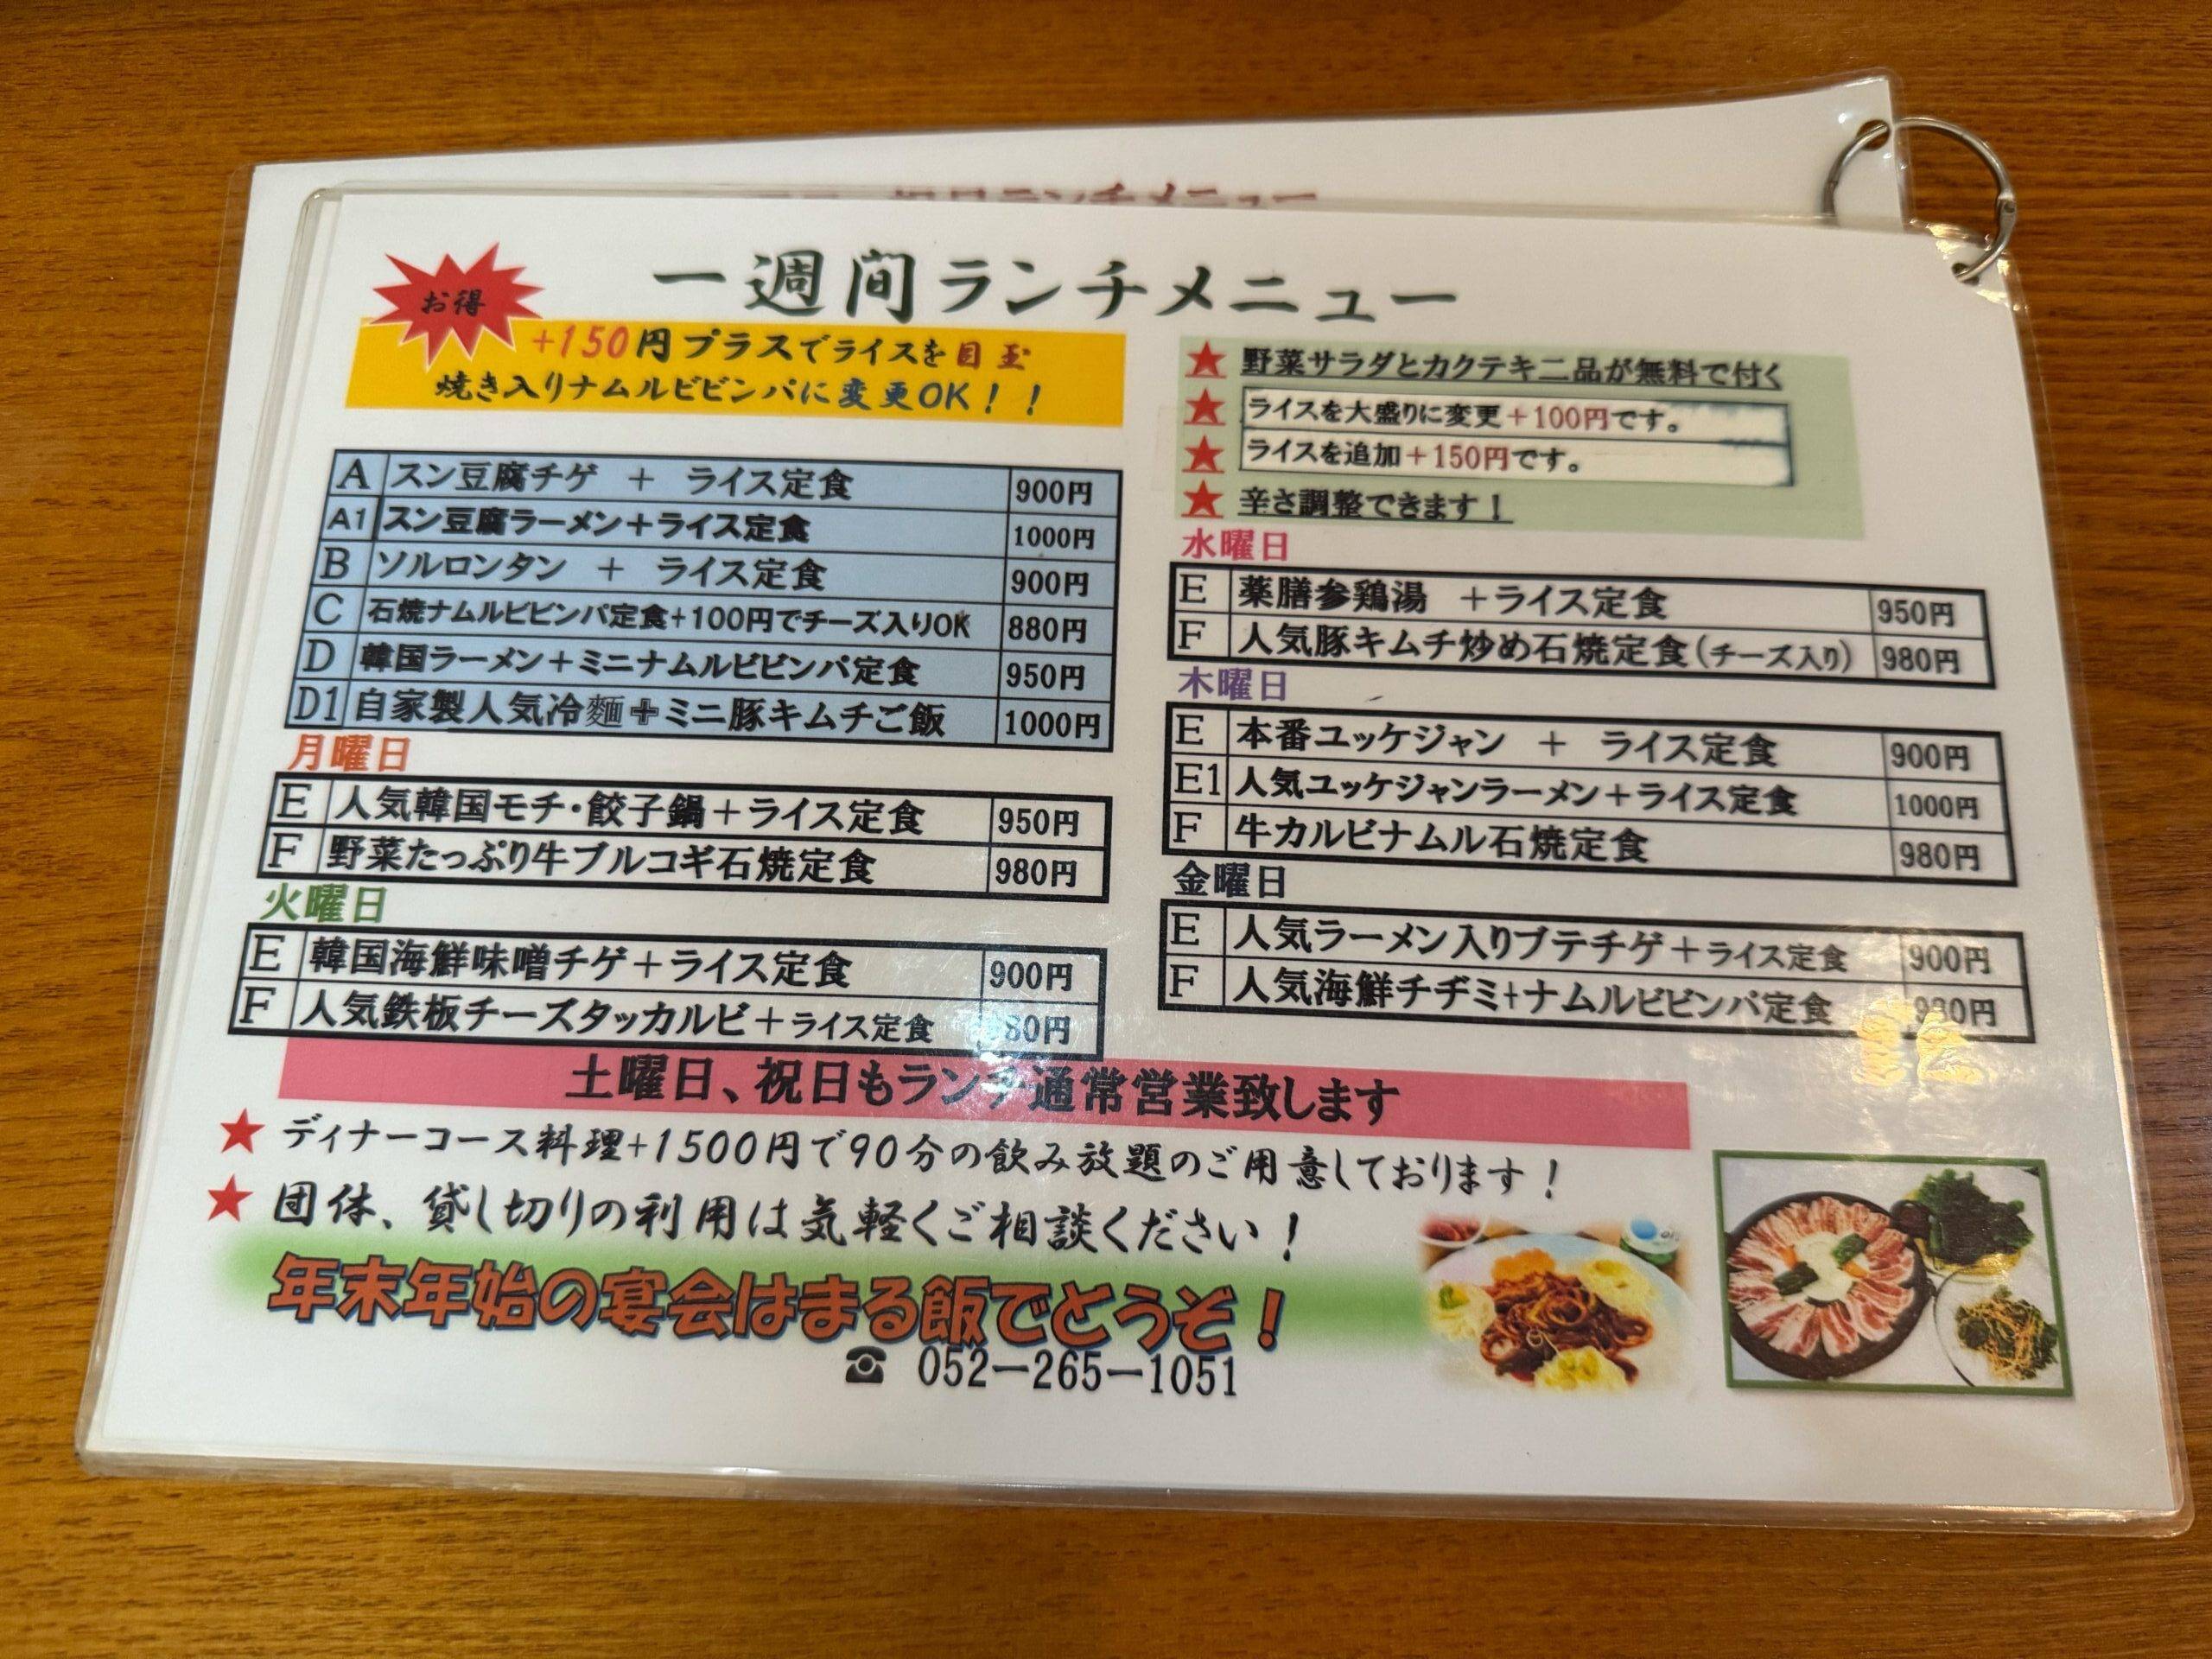 ランチメニュー
一週間ランチメニュー
お得
+150円プラスでライスを目玉
焼き入りナムルビビンバに変更OK!!
A スン豆腐チゲ + ライス定食 900円
A1 スン豆腐ラーメン+ライス定食 1000円
B ソルロンタン + ライス定食 900円
C 石焼ナムルビビンバ定食+100円でチーズ入りOK 880円
D 韓国ラーメン+ミニナムルビビンバ定食 950円
D1 自家製人気冷麵+ミニ豚キムチご飯 1000円
月曜日
E 人気韓国モチ・餃子鍋+ライス定食 950円
F 野菜たっぷり牛ブルコギ石焼定食 980円
火曜日
E 韓国海鮮味噌チゲ+ライス定食 900円
F 人気鉄板チーズタッカルビ+ライス定食 980円
★ 野菜サラダとカクテキ二品が無料で付く
★ ライスを大盛りに変更+100円です。
★ ライスを追加+150円です。
★ 辛さ調整できます!
水曜日
E 薬膳参鶏湯 +ライス定食 950円
F 人気豚キムチ炒め石焼定食(チーズ入り) 980円
木曜日
E 本番ユッケジャン + ライス定食 900円
E1 人気ユッケジャンラーメン+ライス定食 1000円
F 牛カルビナムル石焼定食 980円
金曜日
E 人気ラーメン入りブテチゲ+ライス定食 900円
F 人気海鮮チヂミ+ナムルビビンバ定食 980円
土曜日、祝日もランチ通常営業致します
★ ディナーコース料理+1500円で90分の飲み放題のご用意しております!
★ 団体、貸し切りの利用は気軽くご相談ください!
年末年始の宴会はまる飯でとうぞ!
☎ 052-265-1051